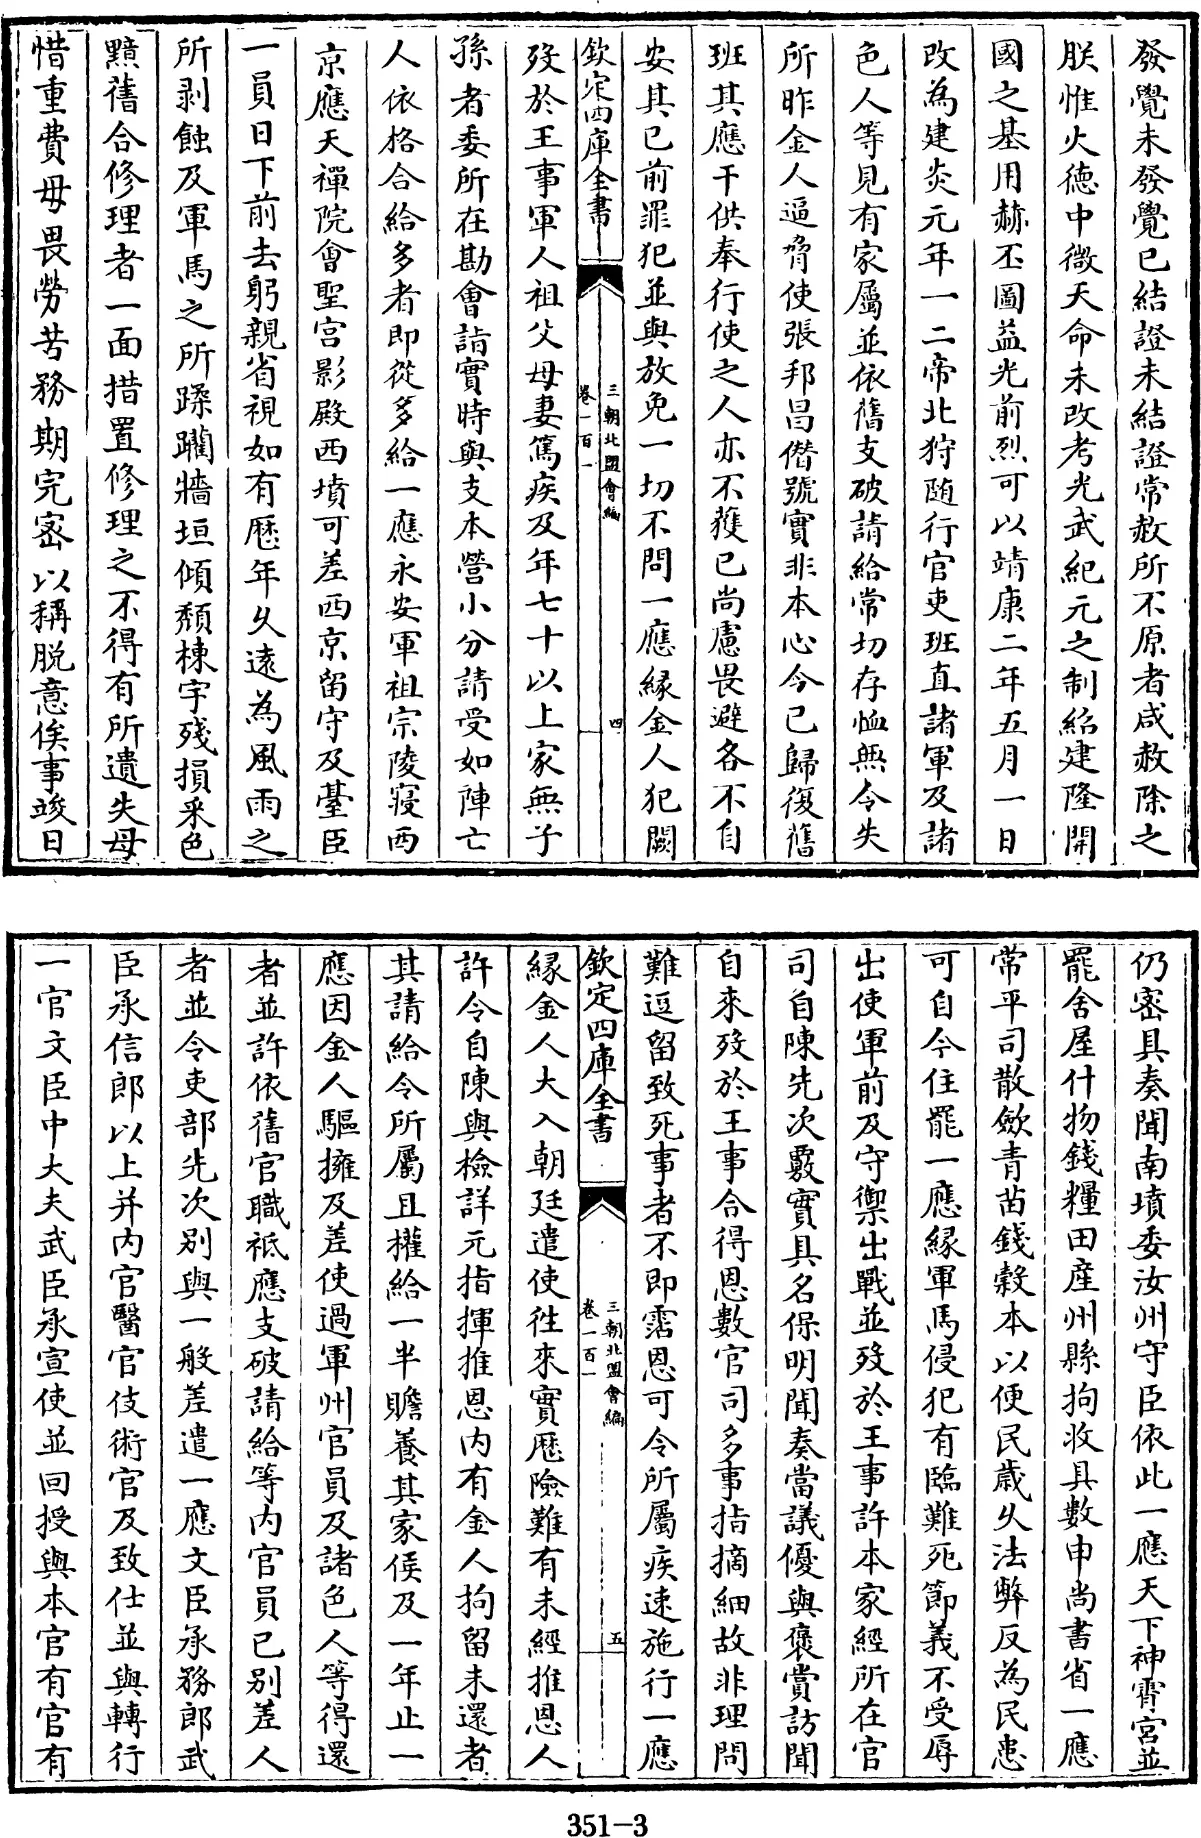 發覺未發覺已結證未結證常赦所不原者咸赦除之
朕惟火德中微天命未改考光武紀元之制紹建隆開
國之基用赫丕圖益光前烈可以靖康二年五月一日
改為建炎元年一二帝北狩随行官吏班直諸軍及諸
色人等見有家屬並依舊支破請給常切存恤無令失
所昨金人逼脅使張邦昌僭號實非本心今已歸復舊
班其應干供奉行使之人亦不獲已尚慮畏避各不自
安其已前罪犯並與放免一切不問一應緣金人犯闕
欽定四庫全書
三朝北盟會編
卷一百一
四
歿於王事軍人祖父母妻篤疾及年七十以上家無子
孫者委所在勘會詣實時與支本營小分請受如陣亡
人依格合給多者即從多給一應永安軍祖宗陵寢西
京應天禪院會聖宮影殿西墳可差西京留守及臺臣
一員日下前去躬親省視如有歷年久遠為風雨之
所剥蝕及軍馬之所蹂躪牆垣傾頹棟宇殘損采色
黯舊合修理者一面措置修理之不得有所遺失毋
惜重費毋畏勞苦務期完密以稱朕意俟事竣日
仍密具奏聞南墳委汝州守臣依此一應天下神霄宮並
罷舍屋什物錢糧田產州縣拘收具數申尚書省一應
常平司散斂青苗錢穀本以便民歲久法弊反為民患
可自今住罷一應緣軍馬侵犯有臨難死節義不受辱
出使軍前及守禦出戰並歿於王事許本家經所在官
司自陳先次覈實具名保明聞奏當議優與褒賞訪聞
自來歿於王事合得恩數官司多事指摘細故非理問
難逗留致死事者不即霑恩可令所屬疾速施行一應
欽定四庫全書
三朝北盟會編
卷一百一
五
緣金人大入朝廷遣使徃來實歷險難有未經推恩人
許令自陳與檢詳元指揮推恩内有金人拘留未還者
其請給令所屬且權給一半贍養其家俟及一年止一
應因金人驅擁及差使過軍州官員及諸色人等得還
者並許依舊官職祗應支破請給等内官員已别差人
者並令吏部先次别與一般差遣一應文臣承務郎武
臣承信郎以上并内官醫官伎術官及致仕並與轉行
一官文臣中大夫武臣承宣使並回授與本官有官有
351-3